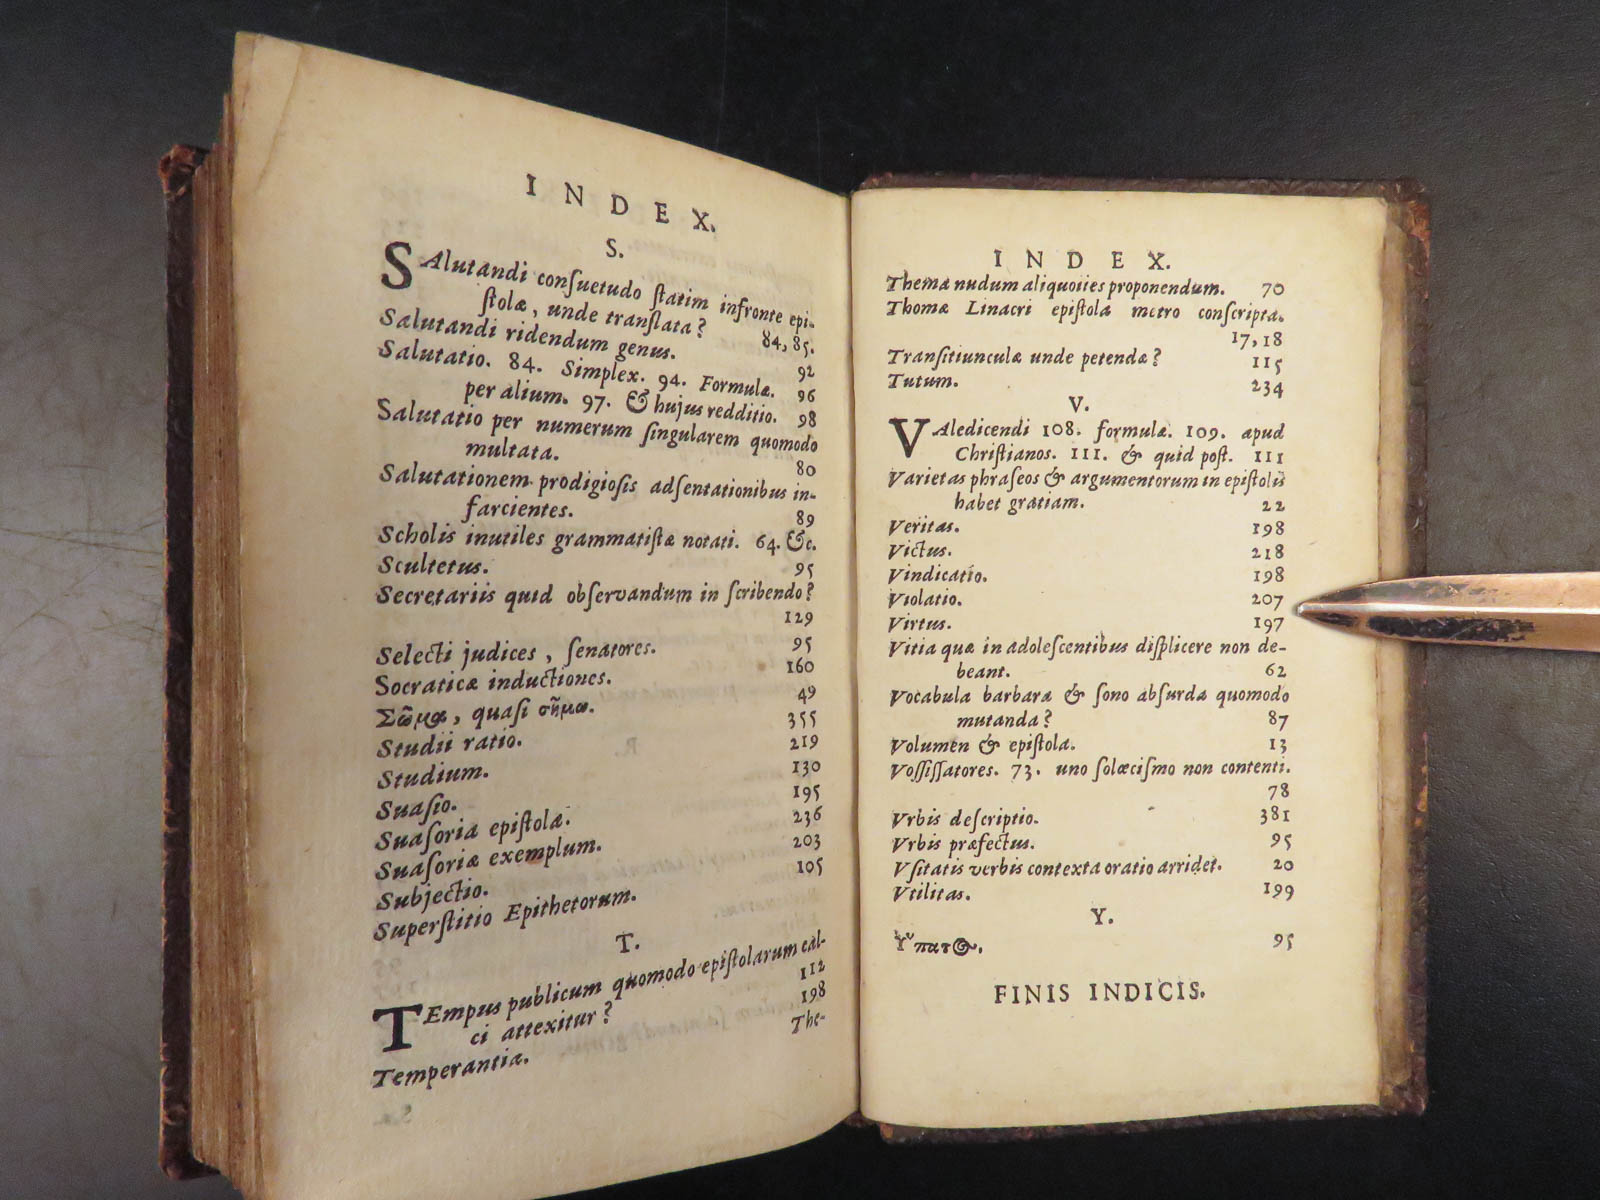 INDEX.
S.
SAlutandi conſuetudo ſtatim infronte epi-
ſtolæ, unde tranſlata? 84, 85.
Salutandi ridendum genus. 92
Salutatio. 84. Simplex. 94. Formulæ. 96
per alium. 97. & hujus redditio. 98
Salutatio per numerum ſingularem quomodo
multata. 80
Salutationem prodigioſis adſentationibus in-
farcientes. 89
Scholis inutiles grammatiſtæ notati. 64. &c.
Scultetus. 95
Secretariis quid obſervandum in ſcribendo?
129
Selecti judices, ſenatores. 95
Socraticæ inductiones. 160
Σῶμα, quaſi σῆμα. 49
Studii ratio. 355
Studium. 219
Suaſio. 130
Suaſoria epiſtolæ. 195
Suaſoriæ exemplum. 236
Subjectio. 203
Superſtitio Epithetorum. 105
T.
TEmpus publicum quomodo epiſtolarum cal-
ci attexitur? 112
Temperantia. 198
The-
INDEX.
Thema nudum aliquoties proponendum. 70
Thomæ Linacri epiſtola metro conſcripta.
17, 18
Tranſitiunculæ unde petendæ? 115
Tutum. 234
V.
VAledicendi 108. formulæ. 109. apud
Chriſtianos. 111. & quid poſt. 111
Varietas phraſeos & argumentorum in epiſtolis
habet gratiam. 22
Veritas. 198
Victus. 218
Vindicatio. 198
Violatio. 207
Virtus. 197
Vitia quæ in adoleſcentibus diſplicere non de-
beant. 62
Vocabula barbara & ſono abſurda quomodo
mutanda? 87
Volumen & epiſtola. 13
Voſſiſſatores. 73. uno ſolœciſmo non contenti.
78
Vrbis deſcriptio. 381
Vrbis præfectus. 95
Vſitatis verbis contexta oratio arridet. 20
Vtilitas. 199
Y.
Ὕπατος. 95
FINIS INDICIS.